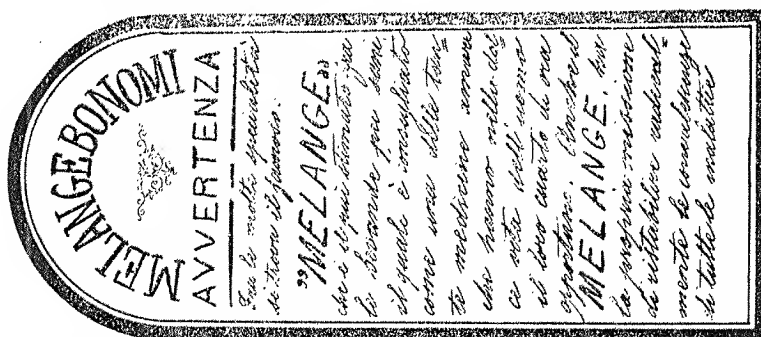 MELANGE BONOMI
AVVERTENZA
Fra le molte specialità
si trova il famoso:
"MELANGE"
che è il più stimato fra
le bevande più sane,
il quale è consigliato
come una delle tan=
te medicine amare
che hanno nella dol=
ce vita dell'uomo
il loro quarto di ora
opportuno.
MELANGE, ha
la propria missione
di ristabilire radical=
mente le convalescenze
di tutte le malattie